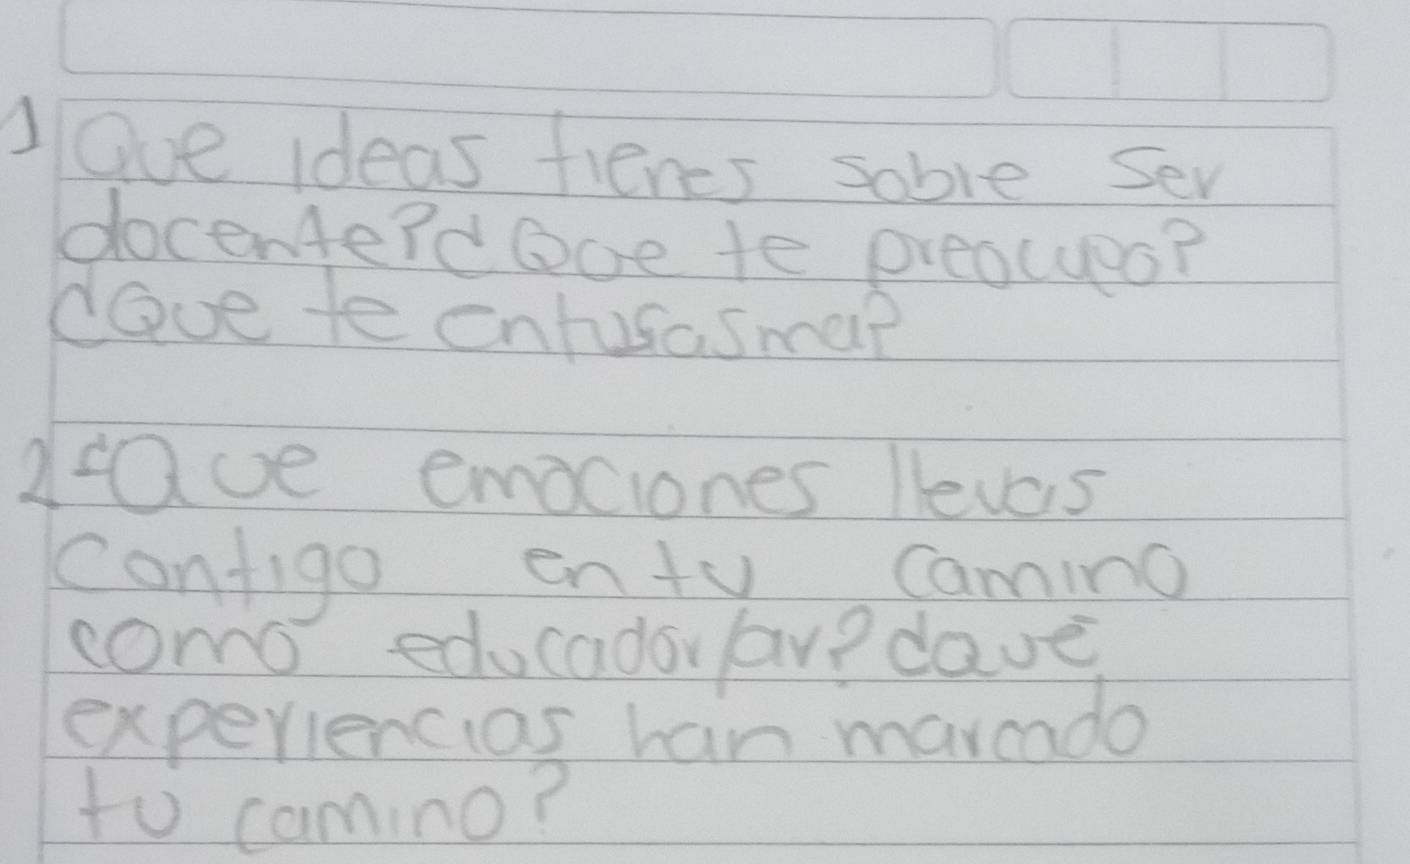 1 Que ideas tienes sobre Ser
docente? ¿Que te preocupa?
¿Que te entusasma?
2 ¿Que emociones llevas
Contigo en tu camino
como educador/ar? ¿Que
experiencias han marcado
tu camino?